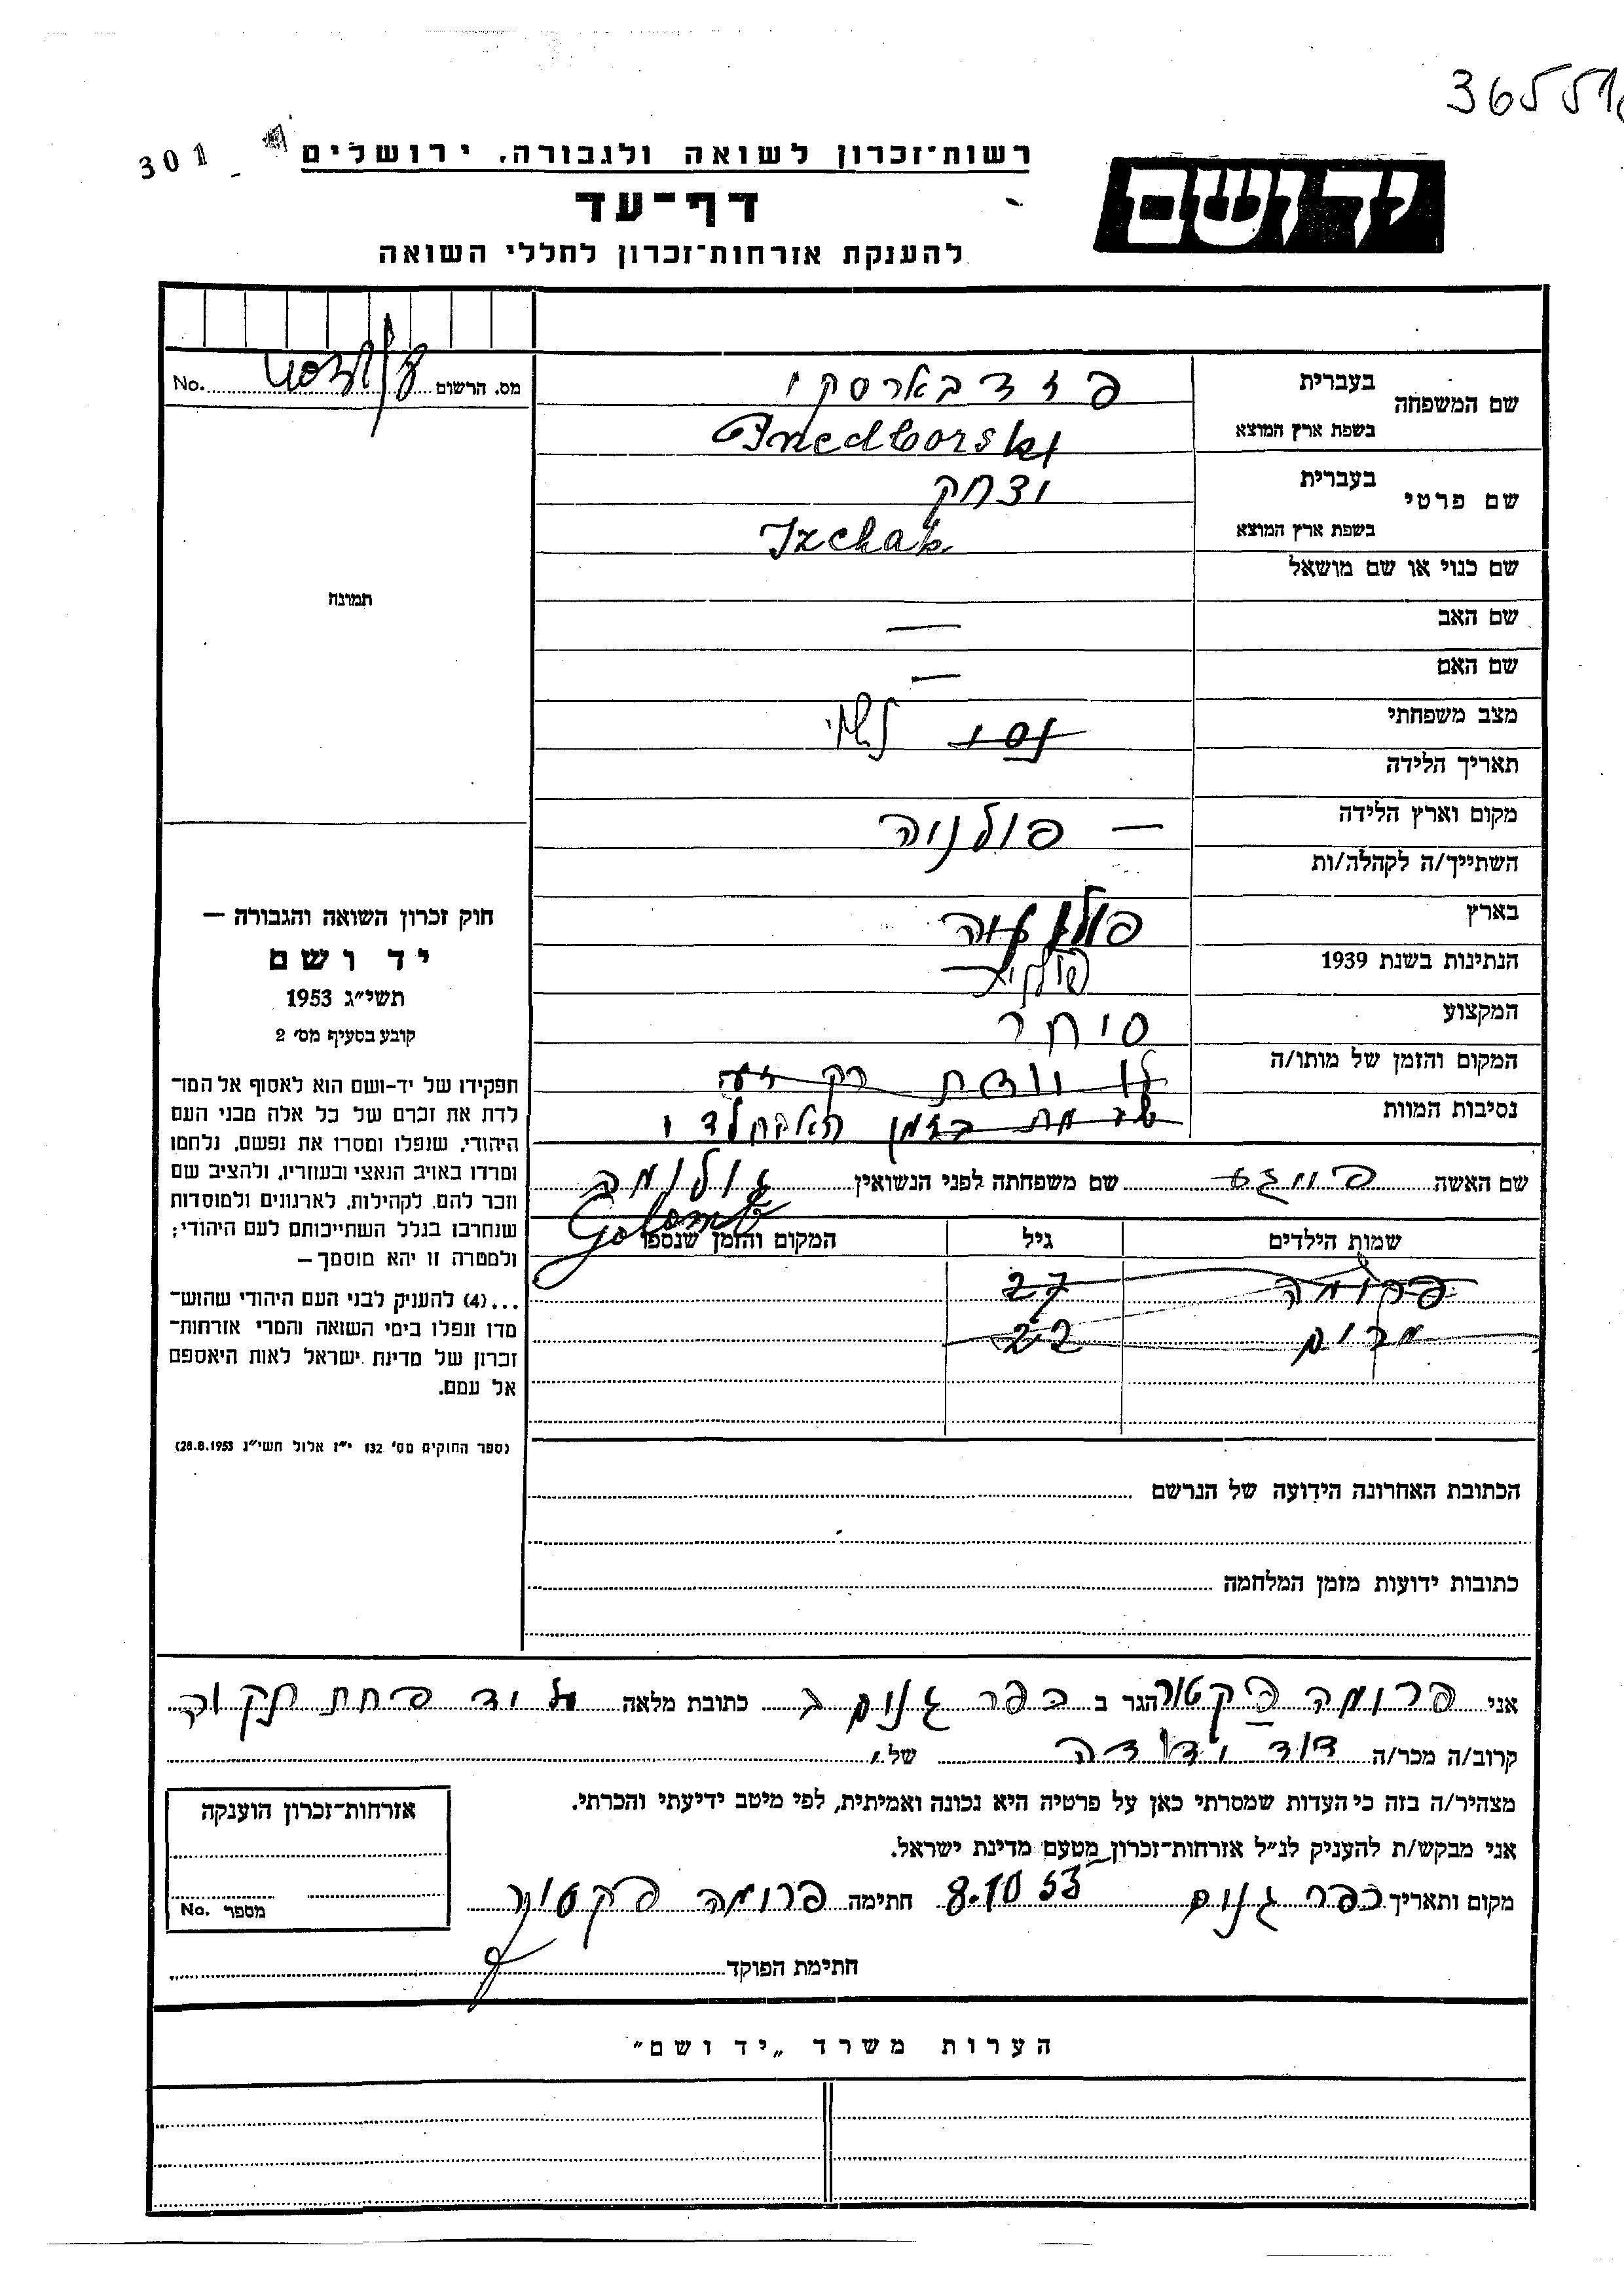 36551
301
רשות־זכרון לשואה ולגבורה, ירושלים
דף־עד
להענקת אזרחות־זכרון לחללי השואה
יד ושם
מס. הרשום No.
שם המשפחה
בעברית
בשפת ארץ המוצא
שם פרטי
בעברית יצחק
בשפת ארץ המוצא Izchak
שם כנוי או שם מושאל
שם האב —
שם האם —
מצב משפחתי נשוי
תאריך הלידה
מקום וארץ הלידה — פולניה
השתייך/ה לקהלה/ות
בארץ
הנתינות בשנת 1939 פולנית
המקצוע סוחר
המקום והזמן של מותו/ה
נסיבות המוות
שם האשה שם משפחתה לפני הנשואין גולומב
Golomb
שמות הילדים גיל המקום והזמן שנספו
פרומה 27
22
הכתובת האחרונה הידועה של הנרשם
כתובות ידועות מזמן המלחמה
תמונה
חוק זכרון השואה והגבורה —
יד ושם
תשי״ג 1953
קובע בסעיף מס׳ 2
תפקידו של יד-ושם הוא לאסוף אל המו־
לדת את זכרם של כל אלה מבני העם
היהודי, שנפלו ומסרו את נפשם, נלחמו
ומרדו באויב הנאצי ובעוזריו, ולהציב שם
וזכר להם, לקהילות, לארגונים ולמוסדות
שנחרבו בגלל השתייכותם לעם היהודי;
ולמטרה זו יהא מוסמך—
...(4) להעניק לבני העם היהודי שהוש־
מדו ונפלו בימי השואה והמרי אזרחות־
זכרון של מדינת ישראל לאות היאספם
אל עמם.
(ספר החוקים מס׳ 132 י״ז אלול תשי״ג 28.8.1953)
אני פרומה פקטור הגר ב כפר גנים ב כתובת מלאה ליד פתח תקוה
קרוב/ה מכר/ה של
מצהיר/ה בזה כי העדות שמסרתי כאן על פרטיה היא נכונה ואמיתית, לפי מיטב ידיעתי והכרתי.
אני מבקש/ת להעניק לנ״ל אזרחות־זכרון מטעם מדינת ישראל.
מקום ותאריך כפר גנים 8.10 55 חתימה פרומה פקטור
חתימת הפוקד
אזרחות־זכרון הוענקה
מספר No.
הערות משרד „יד ושם״